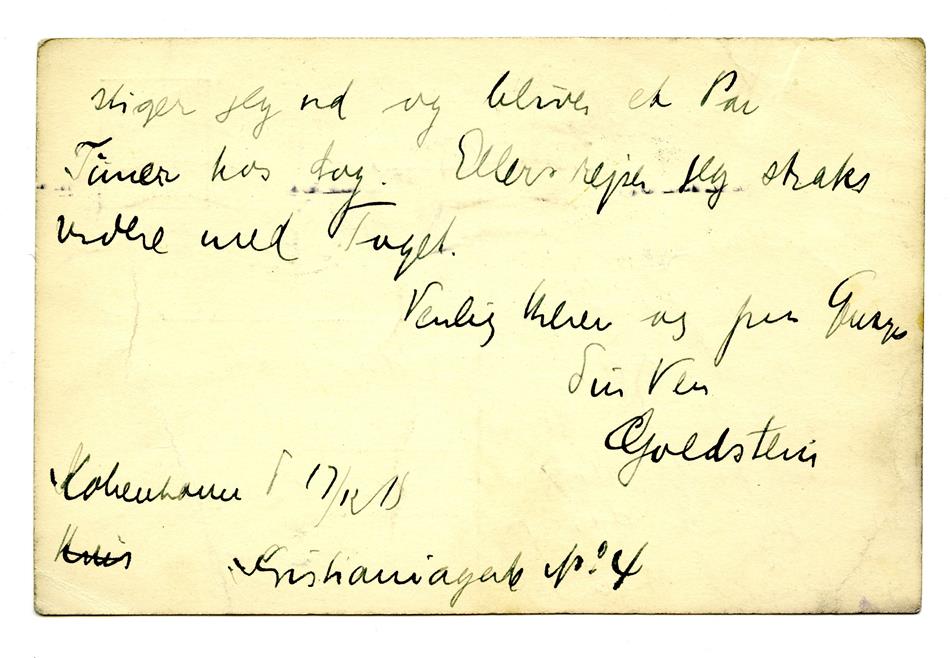 stiger jeg ud og bliver et Par
Timer hos dog. Ellers rejser jeg straks
videre med Toget.
Venlig Hilsen og
Din Ven
Goldstein
København d 17/12 15
Kristianiagade No. 4